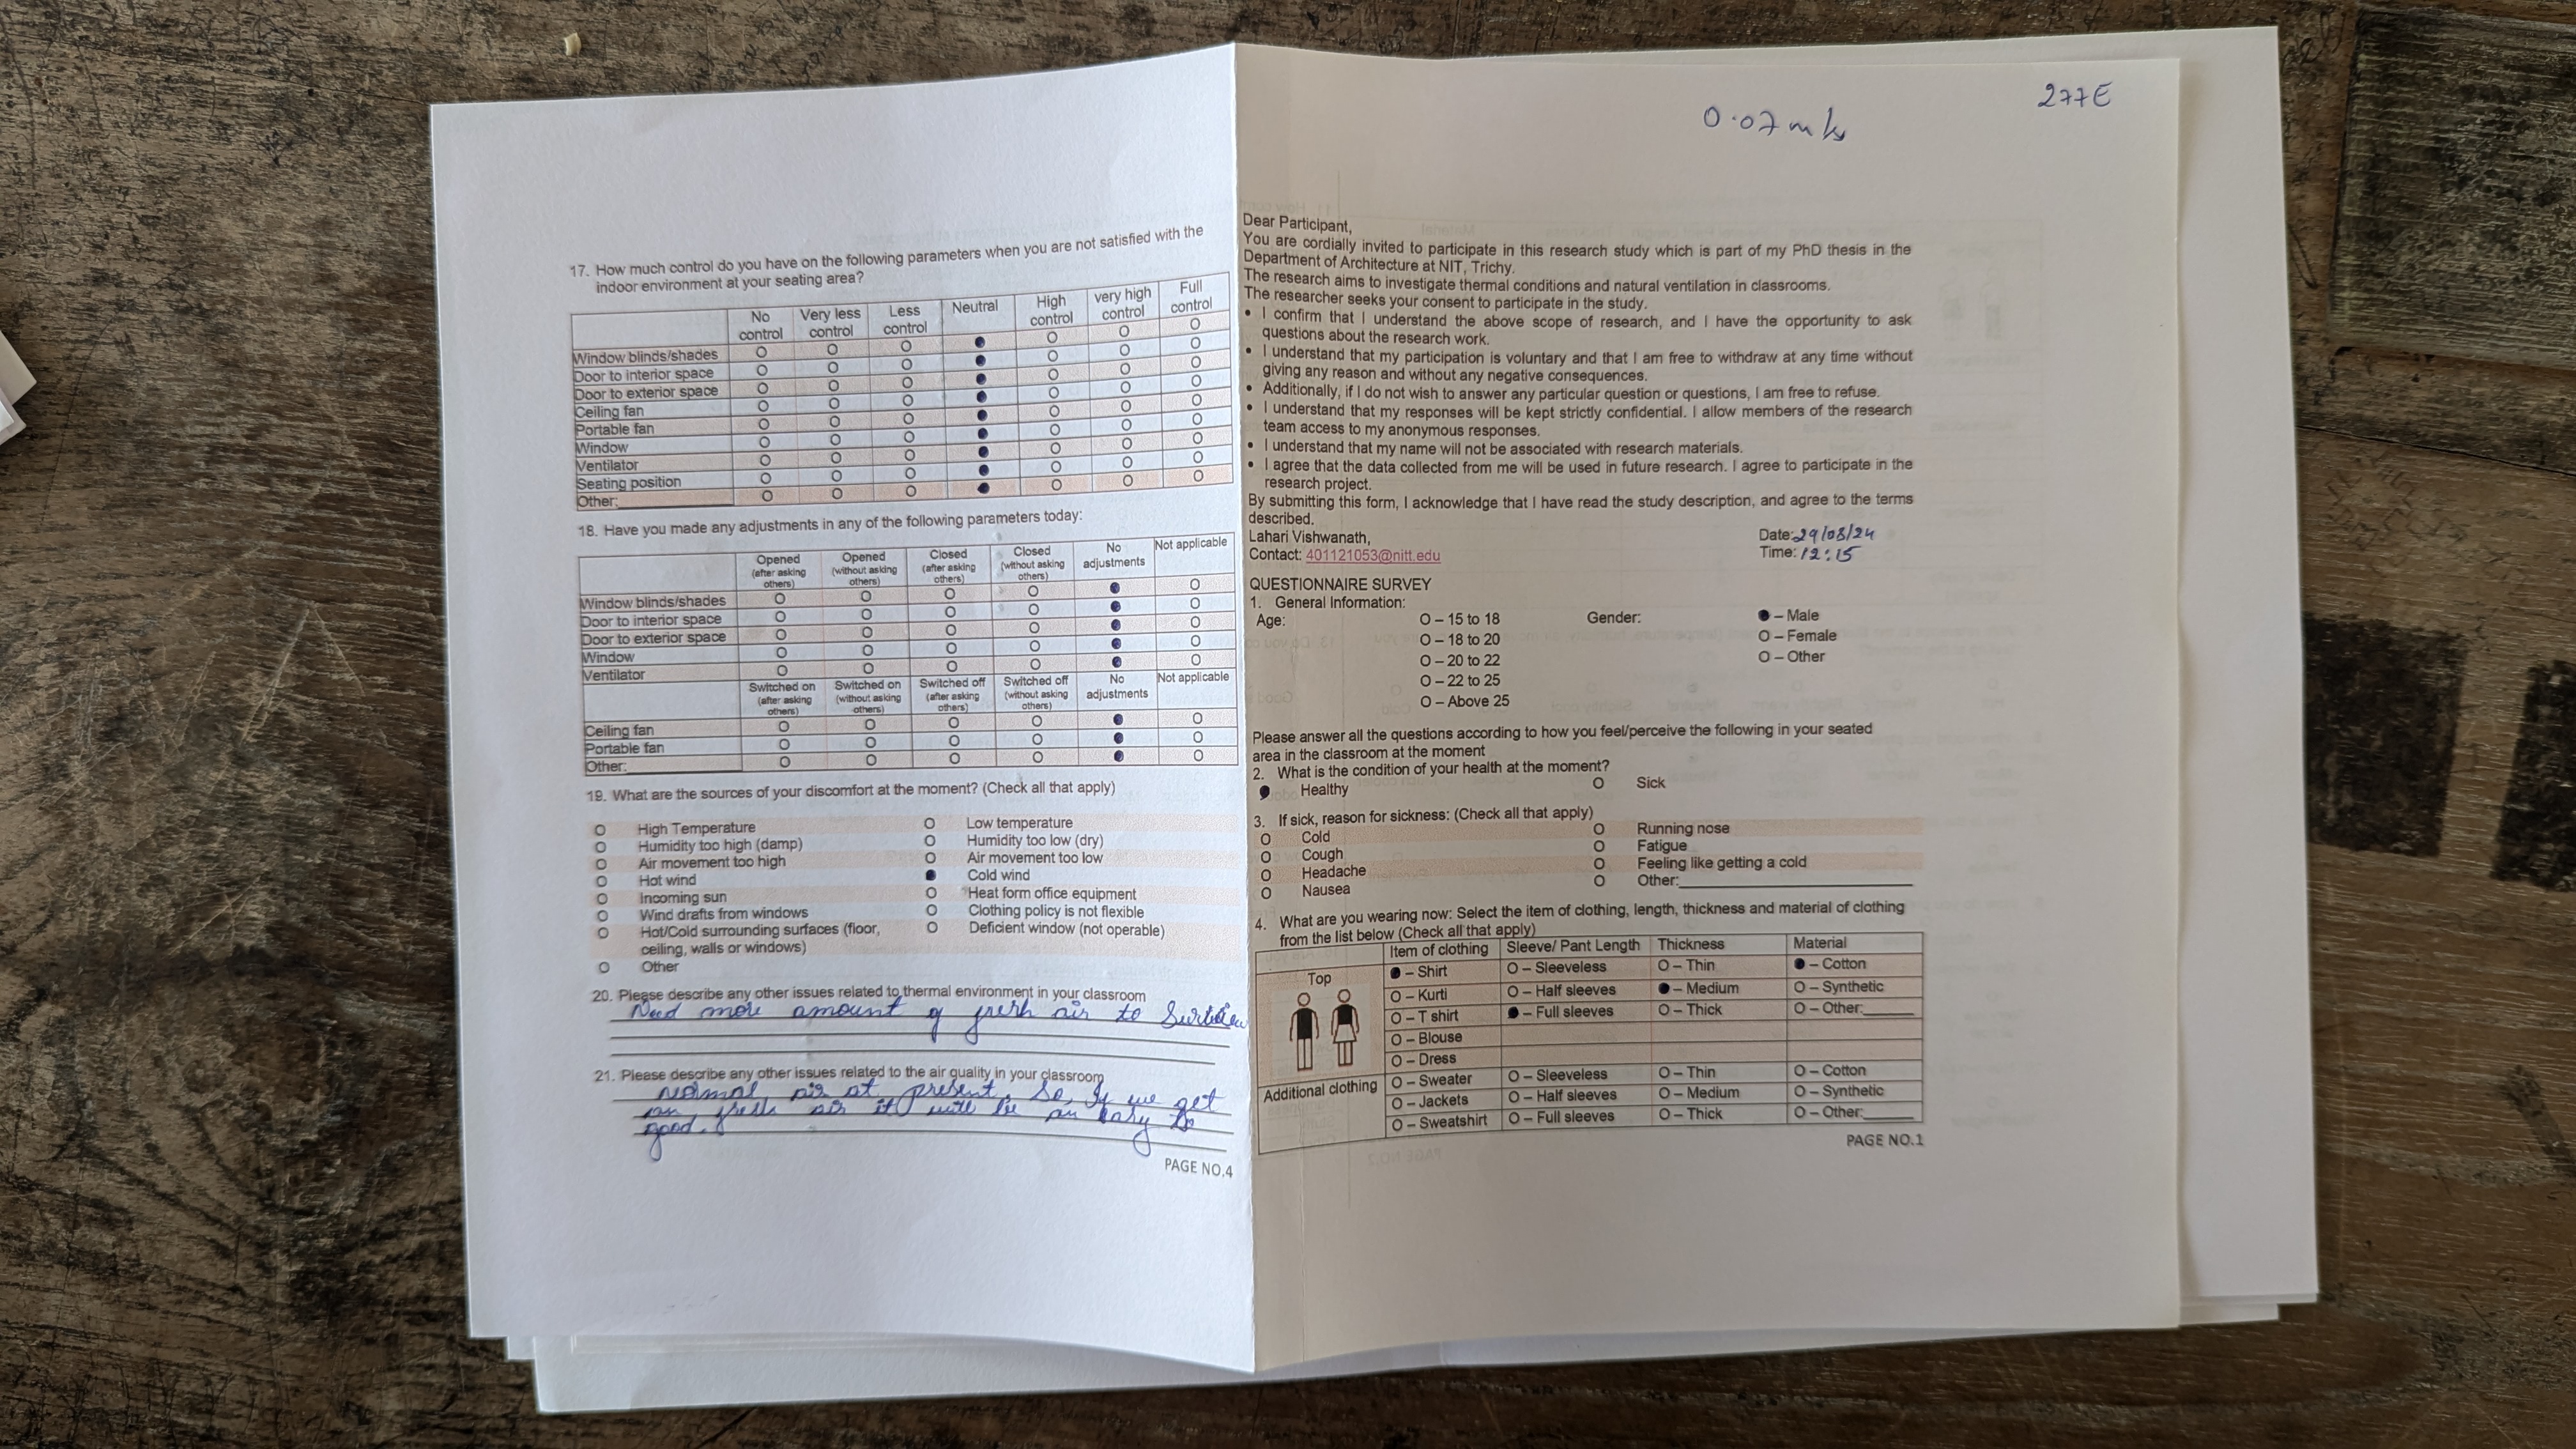 17. How much control do you have on the following parameters when you are not satisfied with the
indoor environment at your seating area?
No control Very less control Less control Neutral High control very high control Full control
Window blinds/shades O O O ● O O O
Door to interior space O O O ● O O O
Door to exterior space O O O ● O O O
Ceiling fan O O O ● O O O
Portable fan O O O ● O O O
Window O O O ● O O O
Ventilator O O O ● O O O
Seating position O O O ● O O O
Other: O O O ● O O O
18. Have you made any adjustments in any of the following parameters today:
Opened (after asking others) Opened (without asking others) Closed (after asking others) Closed (without asking others) No adjustments Not applicable
Window blinds/shades O O O O ● O
Door to interior space O O O O ● O
Door to exterior space O O O O ● O
Window O O O O ● O
Ventilator O O O O ● O
Switched on (after asking others) Switched on (without asking others) Switched off (after asking others) Switched off (without asking others) No adjustments Not applicable
Ceiling fan O O O O ● O
Portable fan O O O O ● O
Other: O O O O ● O
19. What are the sources of your discomfort at the moment? (Check all that apply)
O High Temperature O Low temperature
O Humidity too high (damp) O Humidity too low (dry)
O Air movement too high O Air movement too low
O Hot wind ● Cold wind
O Incoming sun O Heat form office equipment
O Wind drafts from windows O Clothing policy is not flexible
O Hot/Cold surrounding surfaces (floor, O Deficient window (not operable)
ceiling, walls or windows)
O Other
20. Please describe any other issues related to thermal environment in your classroom
Need more amount of fresh air to
21. Please describe any other issues related to the air quality in your classroom
normal air at present. So, If we get
an fresh air it will be an easy to
good.
PAGE NO.4
0.07 m/s
277E
Dear Participant,
You are cordially invited to participate in this research study which is part of my PhD thesis in the
Department of Architecture at NIT, Trichy.
The research aims to investigate thermal conditions and natural ventilation in classrooms.
The researcher seeks your consent to participate in the study.
• I confirm that I understand the above scope of research, and I have the opportunity to ask
questions about the research work.
• I understand that my participation is voluntary and that I am free to withdraw at any time without
giving any reason and without any negative consequences.
• Additionally, if I do not wish to answer any particular question or questions, I am free to refuse.
• I understand that my responses will be kept strictly confidential. I allow members of the research
team access to my anonymous responses.
• I understand that my name will not be associated with research materials.
• I agree that the data collected from me will be used in future research. I agree to participate in the
research project.
By submitting this form, I acknowledge that I have read the study description, and agree to the terms
described.
Lahari Vishwanath, Date: 29/08/24
Contact: 401121053@nitt.edu Time: 12:15
QUESTIONNAIRE SURVEY
1. General Information:
Age: O – 15 to 18 Gender: ● – Male
O – 18 to 20 O – Female
O – 20 to 22 O – Other
O – 22 to 25
O – Above 25
Please answer all the questions according to how you feel/perceive the following in your seated
area in the classroom at the moment
2. What is the condition of your health at the moment?
● Healthy O Sick
3. If sick, reason for sickness: (Check all that apply)
O Cold O Running nose
O Cough O Fatigue
O Headache O Feeling like getting a cold
O Nausea O Other:
4. What are you wearing now: Select the item of clothing, length, thickness and material of clothing
from the list below (Check all that apply)
Item of clothing Sleeve/ Pant Length Thickness Material
Top ● – Shirt O – Sleeveless O – Thin ● – Cotton
O – Kurti O – Half sleeves ● – Medium O – Synthetic
O – T shirt ● – Full sleeves O – Thick O – Other:
O – Blouse
O – Dress
Additional clothing O – Sweater O – Sleeveless O – Thin O – Cotton
O – Jackets O – Half sleeves O – Medium O – Synthetic
O – Sweatshirt O – Full sleeves O – Thick O – Other:
PAGE NO.1